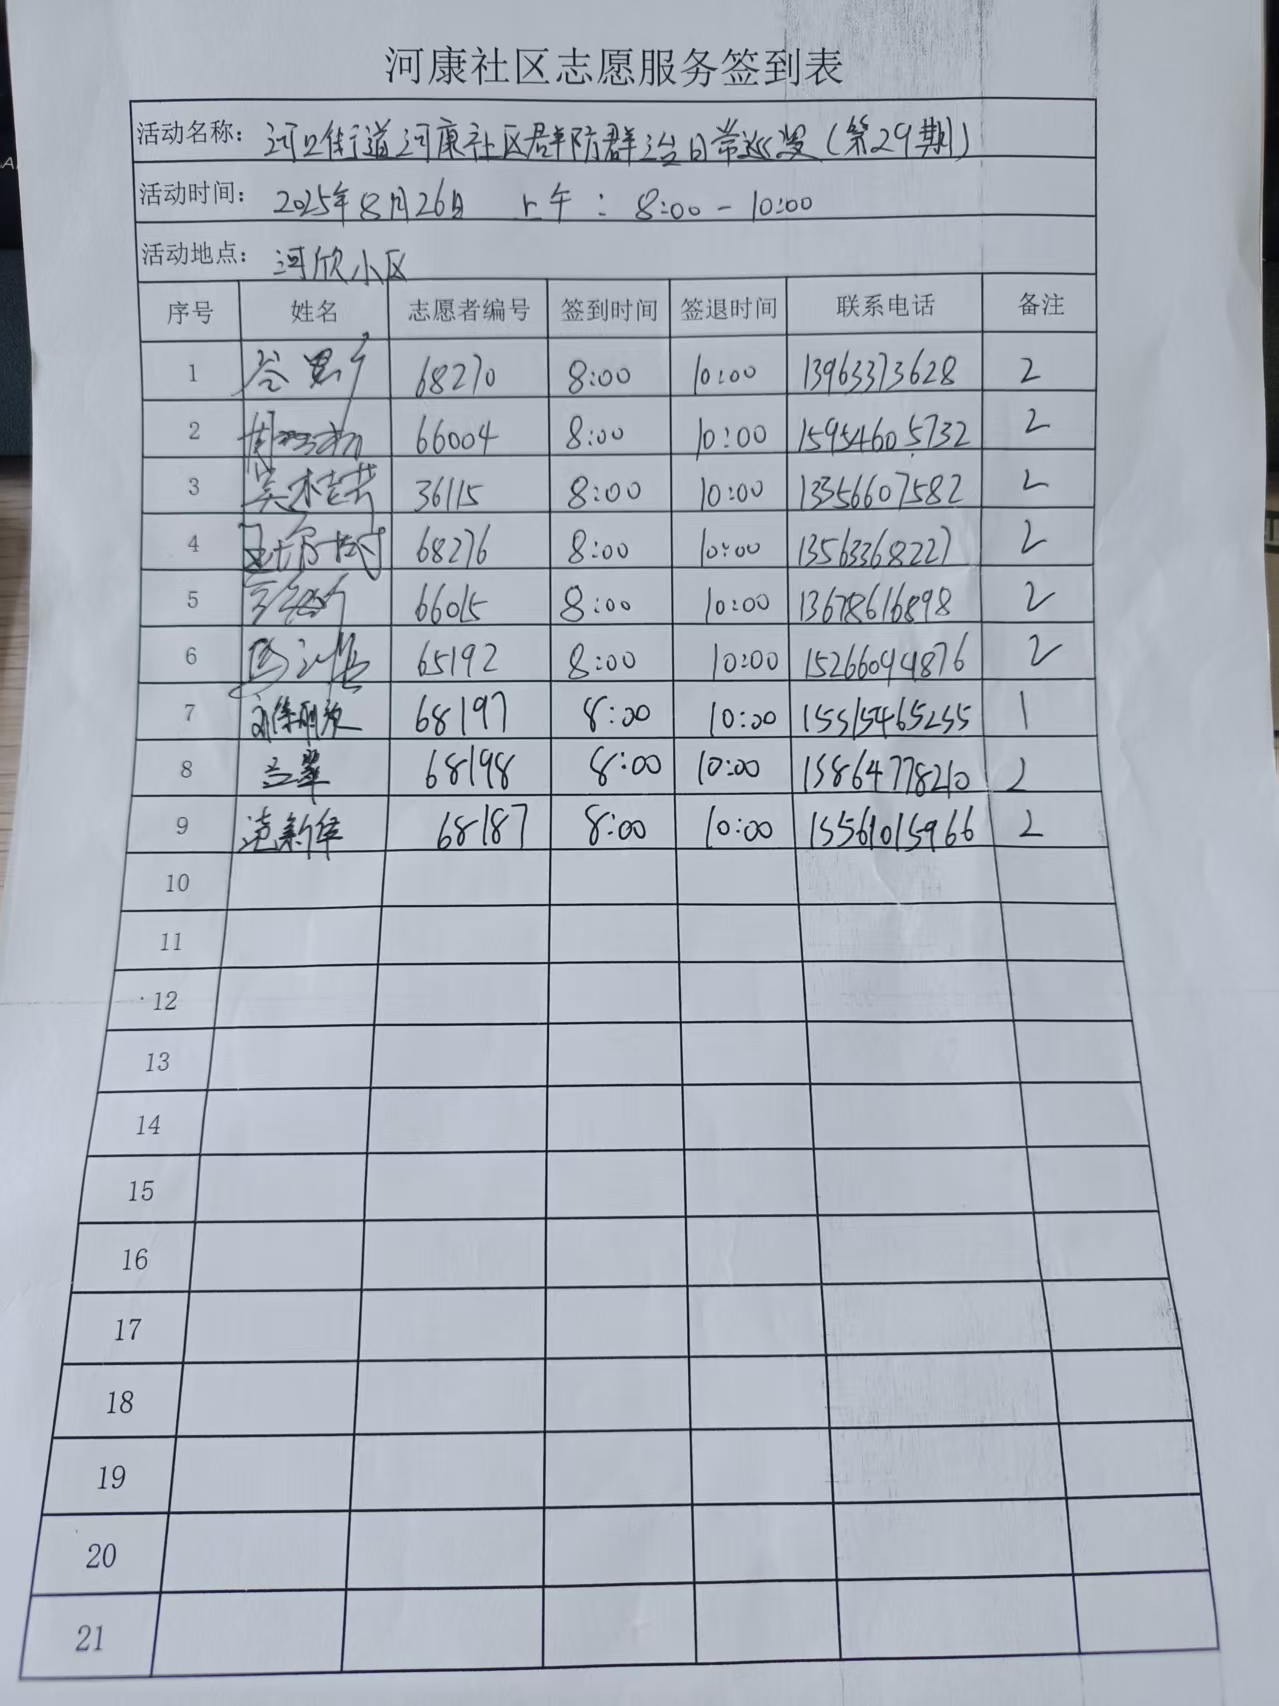 河康社区志愿服务签到表
活动名称: 河口街道河康社区群防群治日常巡逻(第29期)
活动时间: 2025年8月26日 上午: 8:00-10:00
活动地点: 河欣小区
序号 姓名 志愿者编号 签到时间 签退时间 联系电话 备注
1 68270 8:00 10:00 13963373628 2
2 66004 8:00 10:00 15954605732 2
3 36115 8:00 10:00 13356607582 2
4 68276 8:00 10:00 13563368227 2
5 66015 8:00 10:00 13678616898 2
6 65192 8:00 10:00 15266094876 2
7 68197 8:00 10:00 15315465255 1
8 68198 8:00 10:00 15864778210 2
9 68187 8:00 10:00 15561015966 2
10
11
12
13
14
15
16
17
18
19
20
21